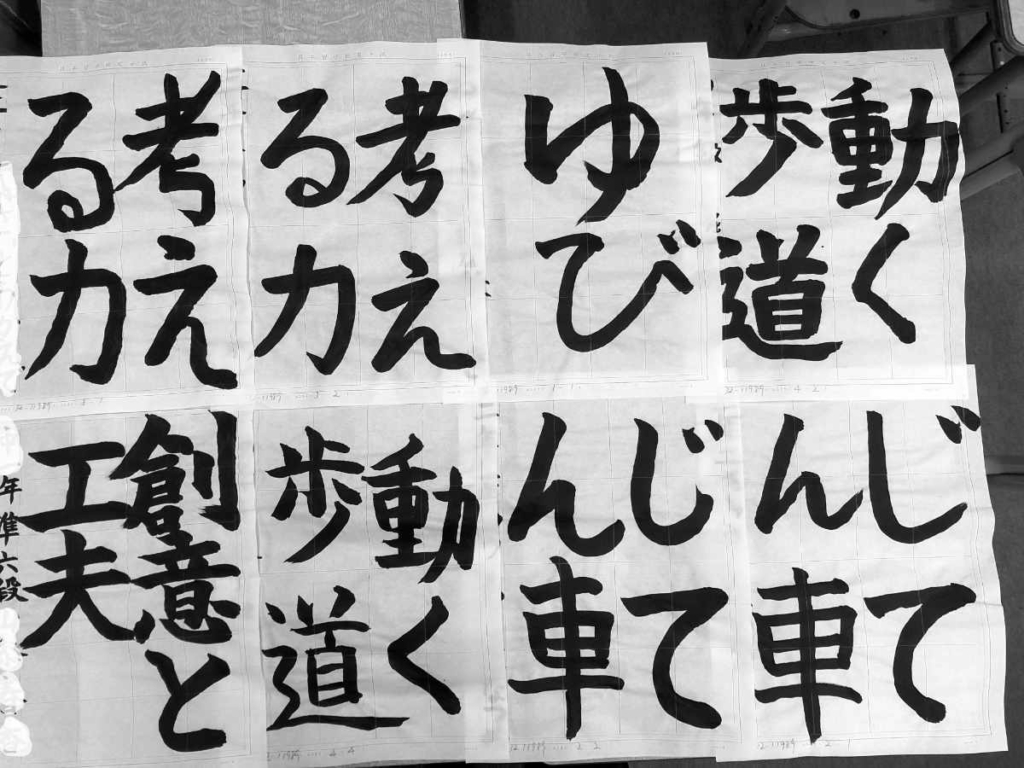 動く
歩道
ゆび
考え
る力
考え
る力
じて
ん車
じて
ん車
動く
歩道
創意と
工夫
年準六段